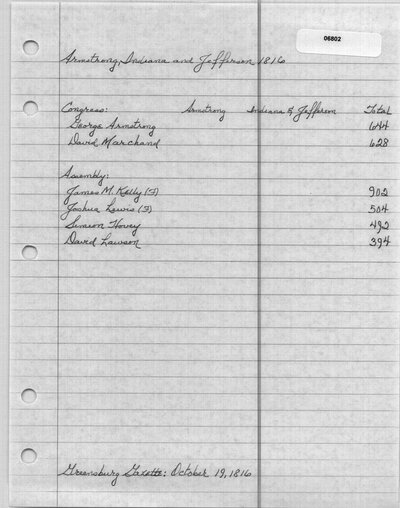 06802
Armstrong, Indiana and Jefferson 1816
Congress: Armstrong Indiana & Jefferson Total
George Armstrong 644
David Marchand 628
Assembly:
James M. Kelly (F) 902
Joshua Lewis (F) 504
Simeon Hovey 492
David Lawson 394
Greensburg Gazette: October 19, 1816